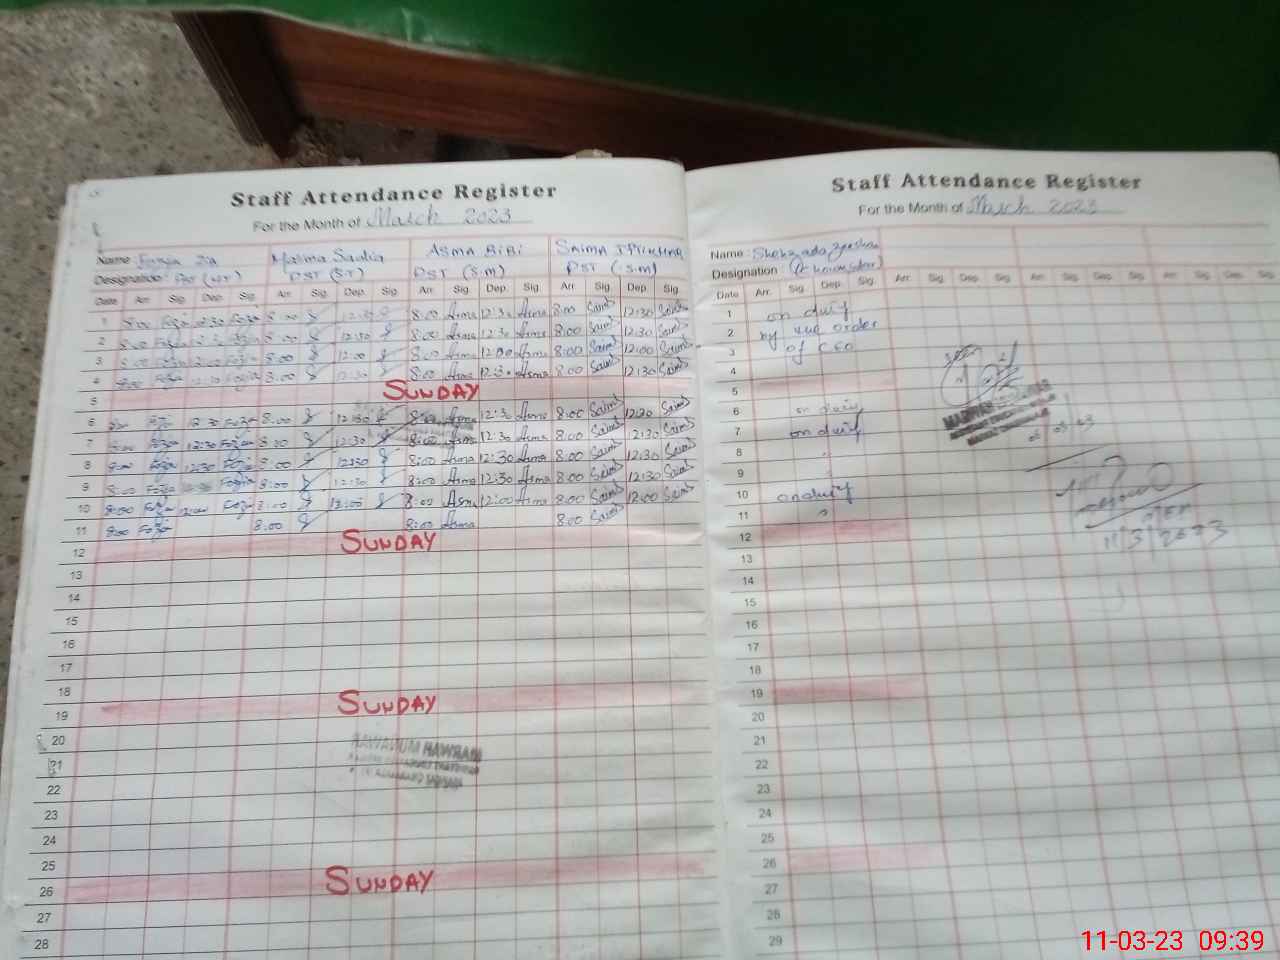 Staff Attendance Register
For the Month of March 2023
Name : Fozia Zia Malima Sadia ASMA BiBi SAIMA
Designation : PST PST (S.T) PST (S.M) PST (S.M)
Date Arr. Sig. Dep. Sig. Arr. Sig. Dep. Sig. Arr. Sig. Dep. Sig. Arr. Sig. Dep. Sig.
1 8:00 Fozia 12:30 Fozia 8:00 12:30 8:00 Asma 12:30 Asma 8:00 Saima 12:30 Saima
2 8:00 Fozia 12:30 Fozia 8:00 12:30 8:00 Asma 12:30 Asma 8:00 Saima 12:30 Saima
3 8:00 Fozia 12:00 Fozia 8:00 12:00 8:00 Asma 12:00 Asma 8:00 Saima 12:00 Saima
4 8:00 Fozia 12:30 Fozia 8:00 12:30 8:00 Asma 12:30 Asma 8:00 Saima 12:30 Saima
5 SUNDAY
6 8:00 Fozia 12:30 Fozia 8:00 12:30 8:00 Asma 12:30 Asma 8:00 Saima 12:30 Saima
7 8:00 Fozia 12:30 Fozia 8:00 12:30 8:00 Asma 12:30 Asma 8:00 Saima 12:30 Saima
8 8:00 Fozia 12:30 Fozia 8:00 12:30 8:00 Asma 12:30 Asma 8:00 Saima 12:30 Saima
9 8:00 Fozia 12:30 Fozia 8:00 12:30 8:00 Asma 12:30 Asma 8:00 Saima 12:30 Saima
10 8:00 Fozia 12:00 Fozia 8:00 12:00 8:00 Asma 12:00 Asma 8:00 Saima 12:00 Saima
11 8:00 Fozia 8:00 8:00 Asma 8:00 Saima
12 SUNDAY
13
14
15
16
17
18
19 SUNDAY
20
21
22
23
24
25
26 SUNDAY
27
28
Staff Attendance Register
For the Month of March 2023
Name : Shehzada
Designation
Date Arr. Sig. Dep. Sig. Arr. Sig. Dep. Sig. Arr. Sig. Dep. Sig.
1 on duty
2 by the order
3 of CEO
4
5
6 on duty
7 on duty
8
9
10 on duty
11
12
13
14
15
16
17
18
19
20
21
22
23
24
25
26
27
28
29
11/3/2023
11-03-23 09:39